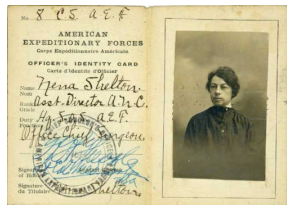 No 8 C S A.E.F
AMERICAN
EXPEDITIONARY FORCES
Corps Expéditionnaire Américain
OFFICER'S IDENTITY CARD
Carte d'identité d'Officier
Name Nena Shelton
Nom
Rank Asst. Director A.N.C.
Grade
Duty Hq. A.E.F.
Fonction
Office Chief Surgeon
Signature
of Holder
Signature
du Titulaire Shelton